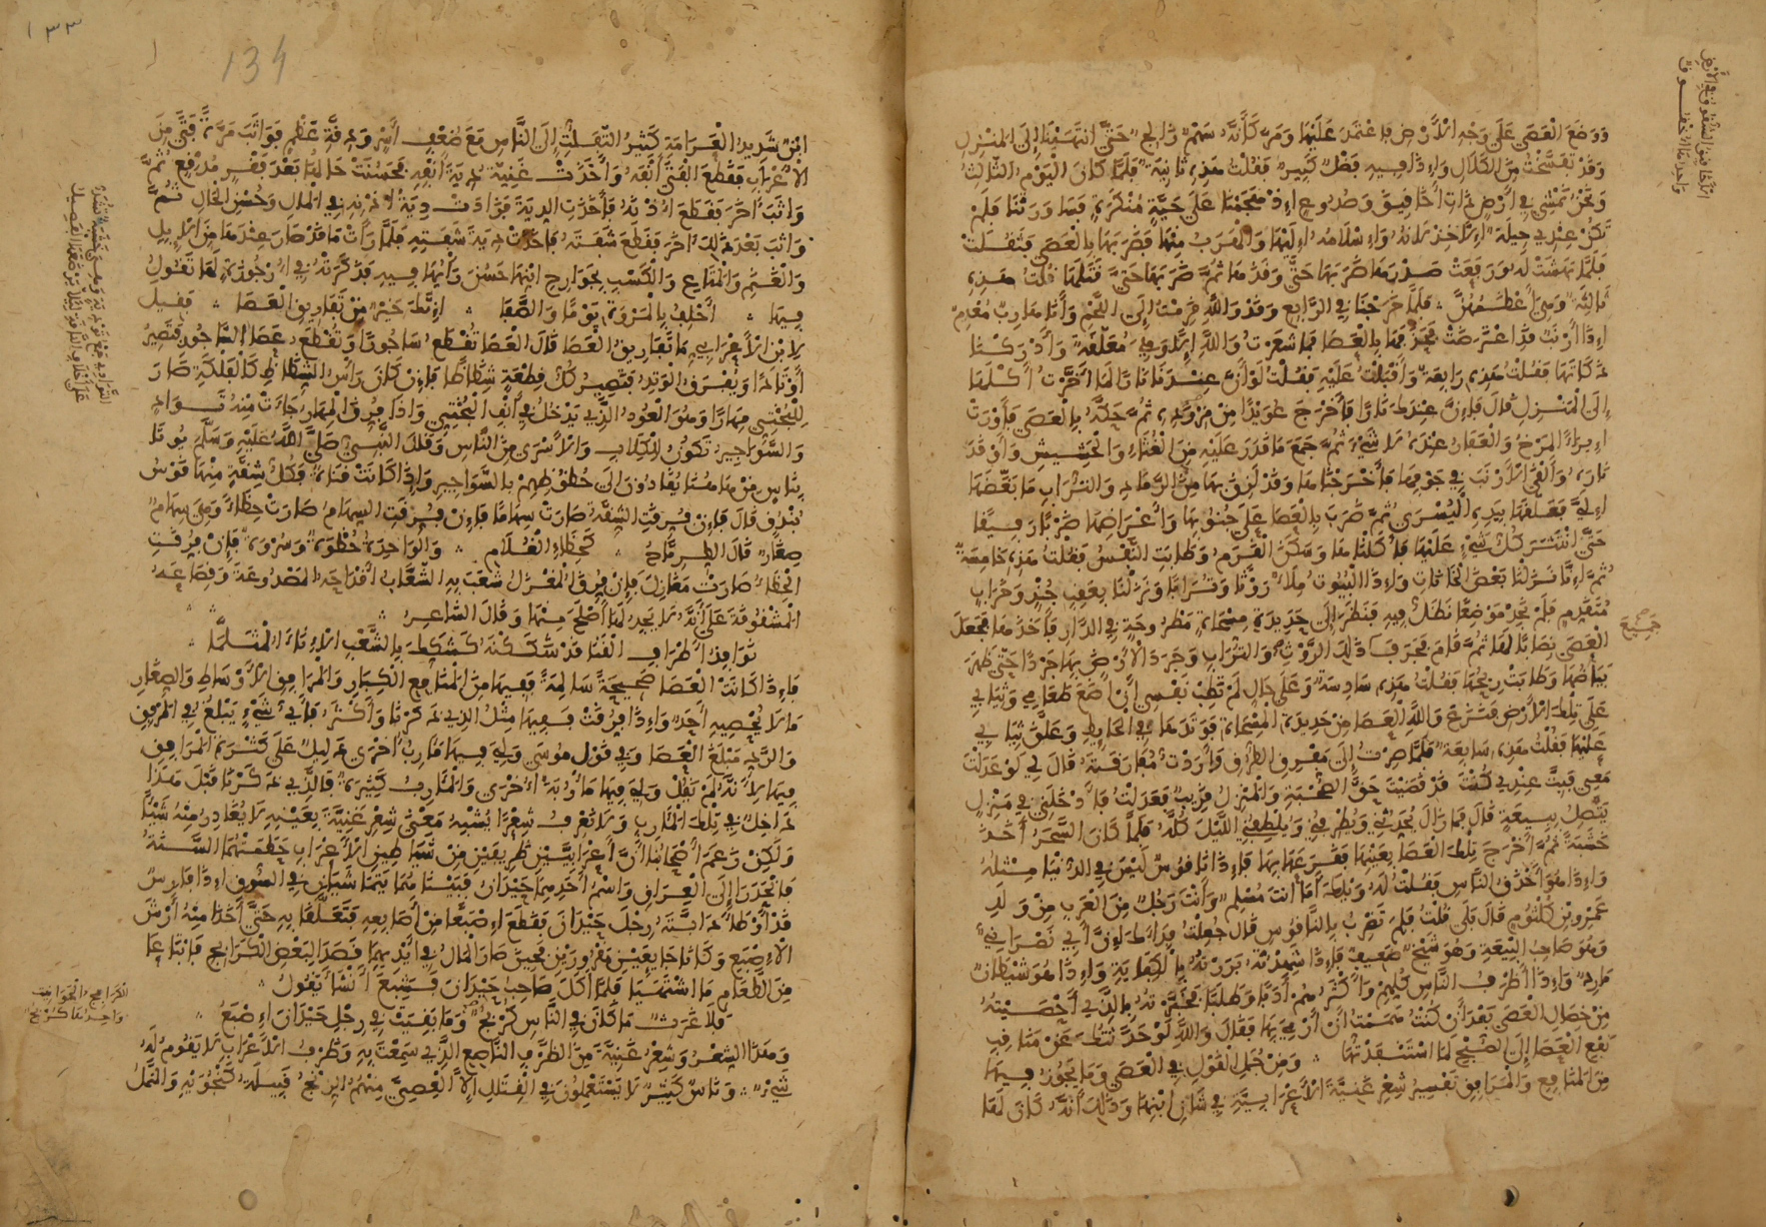 ووضع العصى على وجه الارض فاعتمد عليها ومر كأنه سهم زالج حتى انتهينا إلى المنزل
وقد تفسخت من الكلال واذا فيه فضل كبير فقلت هذه ثانية فلما كان اليوم الثالث
ونحن نمشي في أرض ذات أخافيق وصدوع اذ هجمنا على حية منكرة فساورتنا فلم
تكن عندي حيلة الا خذلانه واسلامه اليها والهرب منها فضربها بالعصى فثقلت
فلما بهشت له ورفعت صدرها ضربها حتى وقذها ثم ضربها حتى قتلها فقلت هذه
ثالثة وهي أعظمهن فلما خرجنا في الرابع وقد والله قرمت إلى اللحم وأنا هارب معدم
اذا أرنب قد اعترضت فحذفها بالعصا فما شعرت والله الا وهي معلقة وأدركنا
ذكاتها فقلت هذه رابعة وأقبلت عليه فقلت لو أن عندنا نارا لما أخرت أكلها
إلى المنزل قال فان عندك نارا فأخرج عويدا من مزوده ثم حكه بالعصى فأورت
ايراء المرخ والعفار عنده لا شيء ثم جمع ما قدر عليه من الغثاء والحشيش وأوقد
ناره وألقى الارنب في جوفها فأخرجناها وقد لزق بها من الرماد والتراب ما بغضها
الي فعلقها بيده اليسرى ثم ضرب بالعصا على جنوبها وأعراضها ضربا رفيقا
حتى انتثر كل شيء عليها فأكلناها وسكن القرم وطابت النفس فقلت هذه خامسة
ثم انا نزلنا بعض الخانات واذا البيوت ملاء روثا وترابا ونزلنا بعقب جند وخراب
متقدم فلم نجد موضعا نظل فيه فنظر إلى حديدة مسحاة مطروحة في الدار فأخذها فجعل
العصى نصابا لها ثم قام فجرف ذلك الروث والتراب وجرد الأرض بها جردا حتى ظهر
بياضها وطابت ريحها فقلت هذه سادسة وعلى حال لم تطب نفسي أن أضع طعامي وثيابي
على تلك الأرض فنزع والله العصا من حديدة المسحاة فوتدها في الحايط وعلق ثيابي
عليها فقلت هذه سابعة فلما صرت إلى مفرق الطرق وأردت مفارقته قال لي لو عدلت
معي فبت عندي كنت قد قضيت حق الصحبة والمنزل قريب فعدلت فأدخلني في منزل
يتصل ببيعة قال فما زال يحدثني ويطرفني ويلطفني الليل كله فلما كان السحر أخذ
خشبة ثم أخرج تلك العصا بعينها فقرعها بها فاذا ناقوس ليس في الدنيا مثله
واذا هو أحذق الناس فقلت له ويلك أما أنت مسلم وأنت رجل من العرب من ولد
عمرو بن كلثوم قال بلى قلت فلم تضرب بالناقوس قال جعلت فداك ان أبي نصراني
وهو صاحب البيعة وهو شيخ ضعيف فاذا شهدته بررته بالكفاية واذا هو شيطان
مارد واذا أظرف الناس كلهم وأكثرهم أدبا وطلبا فخبرته بالذي أحصيته
من خصال العصى بعد أن كنت هممت أن أرمي بها فقال والله لو حدثتك عن مناقب
نفع العصا إلى الصبح لما استنفدتها ومن جمل القول في العصى وما يجوز فيها
من المنافع والمرافق تفسير شعر غنية الأعرابية في شان ابنها وذلك أنه كان لها
الأخافيق الشقوق في الأرض
واحدها أخفوق
صح جميع
١٣٣
134
ابن شديد العرامة كثير التفلت إلى الناس مع ضعف أسر ودقة عظم فواثب مرة فتى من
الأعراب فقطع الفتى أنفه وأخذت غنية دية أنفه فحسنت حالها بعد فقر مدقع ثم
واثب آخر فقطع أذنه فأخذت الدية فزادت دية أذنه في المال وحسن الحال ثم
واثب بعد ذلك آخر فقطع شفته فأخذت دية شفته فلما رأت ما قد صار عندها من الابل
والغنم والمتاع والكسب بجوارح ابنها حسن رأيها فيه فذكرته في أرجوزة لها تقول
فيها أحلف بالمروة يوما والصفا إنك خير من تفاريق العصا فقيل
لابن الأعرابي ما تفاريق العصا قال العصا تقطع ساجورا وتقطع عصا الساجور فتصير
أوتادا ويفرق الوتد فتصير كل قطعة شظاظا فان كان رأس الشظاظ كالفلكة صار
للبختي مهارا وهو العود الذي يدخل في أنف البختي واذا فرق المهار جاءت منه تواد
والسواجير تكون للكلاب والاسرى من الناس وقال النبي صلى الله عليه وسلم يؤتا
بناس من هاهنا يقادون إلى حظوظهم بالسواجير واذا كانت قناة فكل شقة منها قوس
بندق قال فان فرقت الشقة صارت سهاما فان فرقت السهام صارت حظاء وهي سهام
صغار قال الطرماح كحظاء الغلام والواحدة حظوة وسروة فان فرقت
الحظاء صارت مغازل فان فرق المغزل شعب به الشعاب أقداحه المصدوعة وقصاعه
المشقوقة على أنه لا يجد لها أصلح منها وقال الشاعر
نوافذ أطراف القنا قد شككنه كشكك بالشعب الاناء المثلما
فاذا كانت العصا صحيحة سالمة ففيها من المنافع الكبار والمرافق الأوساط والصغار
ما لا يحصيه أحد واذا فرقت ففيها مثل الذي ذكرنا وأكثر فأي شيء يبلغ في المرفق
والرد مبلغ العصا وفي قول موسى ولي فيها مآرب أخرى دليل على كثرة المرافق
فيها لأنه لم يقل ولي فيها مأربة أخرى والمآرب كثيرة فالذي ذكرنا قبل هذا
داخل في تلك المآرب ولا نعرف شعرا يشبه معنى شعر غنية بعينه لا يغادر منه شيئا
ولكن زعم أصحابنا أن أعرابيين ظريفين من شياطين الأعراب حطمتهما السنة
فانحدرا إلى العراق واسم أحدهما حيدان فبينما هما يتماشيان في السوق اذا فارس
قد أوطأ دابته رجل حيدان فقطع اصبعا من أصابعه فتعلقا به حتى أخذا منه أرش
الاصبع وكانا جايعين مقرورين فحين صار المال في أيديهما قصدا لبعض الكرابج فابتاعا
من الطعام ما اشتهيا فلما أكل صاحب حيدان فشبع أنشأ يقول
فلا غرث ما كان في الناس كربج وما بقيت في رجل حيدان اصبع
وهذا الشعر وشعر غنية من الظرف الناصع الذي سمعت به وظرف الأعراب لا يقوم له
شيء وناس كثير لا يستعملون في القتال إلا العصي منهم الزنج قبيلة كنجويه والنمل
الكرابج الحوانيت
واحدها كربج